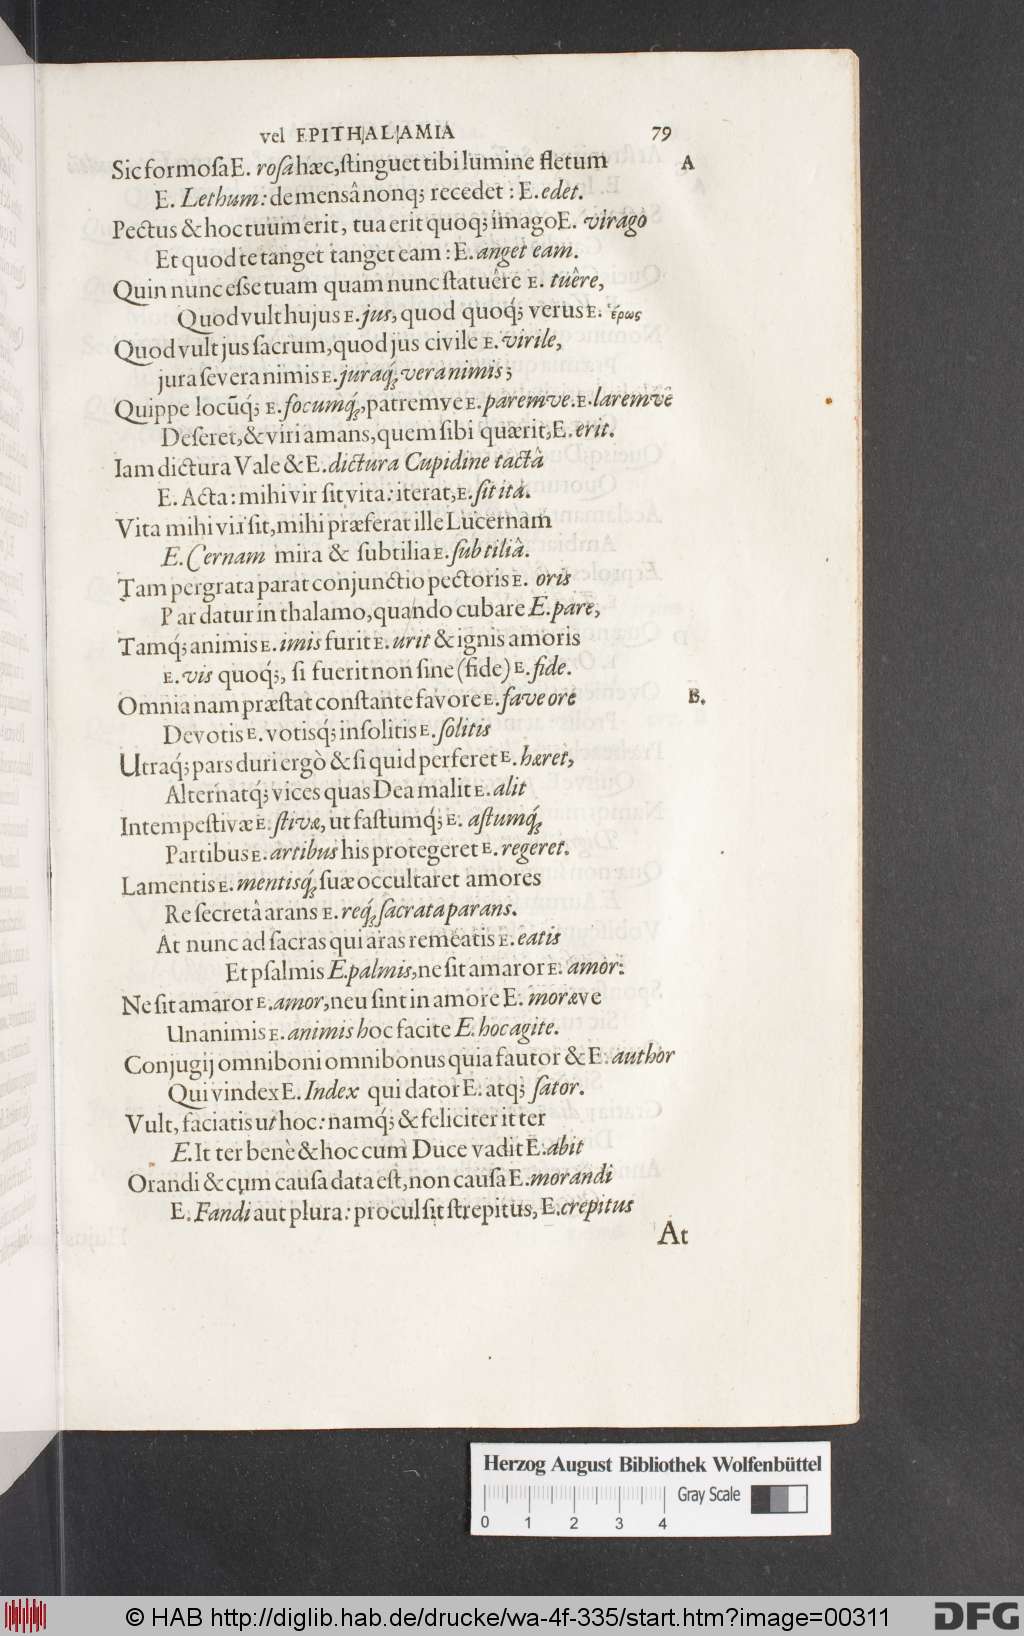 vel EPITHALAMIA 79
Sic formosa E. rosa hæc, stinguet tibi lumine fletum A
E. Lethum: de mensâ nonq; recedet: E. edet.
Pectus & hoc tuum erit, tua erit quoq; imago E. virago
Et quod te tanget tanget eam: E. anget eam.
Quin nunc esse tuam quam nunc statuêre E. tuêre,
Quod vult hujus E. jus, quod quoq́; verus E. ἔρως
Quod vult jus sacrum, quod jus civile E. virile,
jura severa nimis E. juraq́; vera nimis;
Quippe locũq́; E. focumq́;, patremve E. paremve. E. laremvê
Deseret, & viri amans, quem sibi quærit, E. erit.
Iam dictura Vale & E. dictura Cupidine tactâ
E. Acta: mihi vir sit, vita: iterat, E. sit ita.
Vita mihi vir sit, mihi præferat ille Lucernam
E. Cernam mira & subtilia E. sub tiliâ.
Tam pergrata parat conjunctio pectoris E. oris
Par datur in thalamo, quando cubare E. pare,
Tamq́; animis E. imis furit E. urit & ignis amoris
E. vis quoq́;, si fuerit non sine (fide) E. fide.
Omnia nam præstat constante favore E. fave ore B.
Devotis E. votisq́; insolitis E. solitis
Utraq́; pars duri ergò & si quid perferet E. hæret,
Alternatq́; vices quas Dea malit E. alit
Intempestivæ E. stivæ, ut fastumq́; E. astumq́;
Partibus E. artibus his protegeret E. regeret.
Lamentis E. mentisq́; suæ occultaret amores
Re secretâ arans E. req́; sacrata parans.
At nunc ad sacras qui aras remeatis E. eatis
Et psalmis E. palmis, ne sit amaror E. amor:
Ne sit amaror E. amor, neu sint in amore E. moræve
Unanimis E. animis hoc facite E. hoc agite.
Conjugij omniboni omnibonus quia fautor & E. author
Qui vindex E. Index qui dator E. atq; sator.
Vult, faciatis ut hoc: namq́; & feliciter it ter
E. It ter benè & hoc cum Duce vadit E. abit
Orandi & cum causa data est, non causa E. morandi
E. Fandi aut plura: procul sit strepitus, E. crepitus
At
Herzog August Bibliothek Wolfenbüttel
Gray Scale
0 1 2 3 4
© HAB http://diglib.hab.de/drucke/wa-4f-335/start.htm?image=00311
DFG